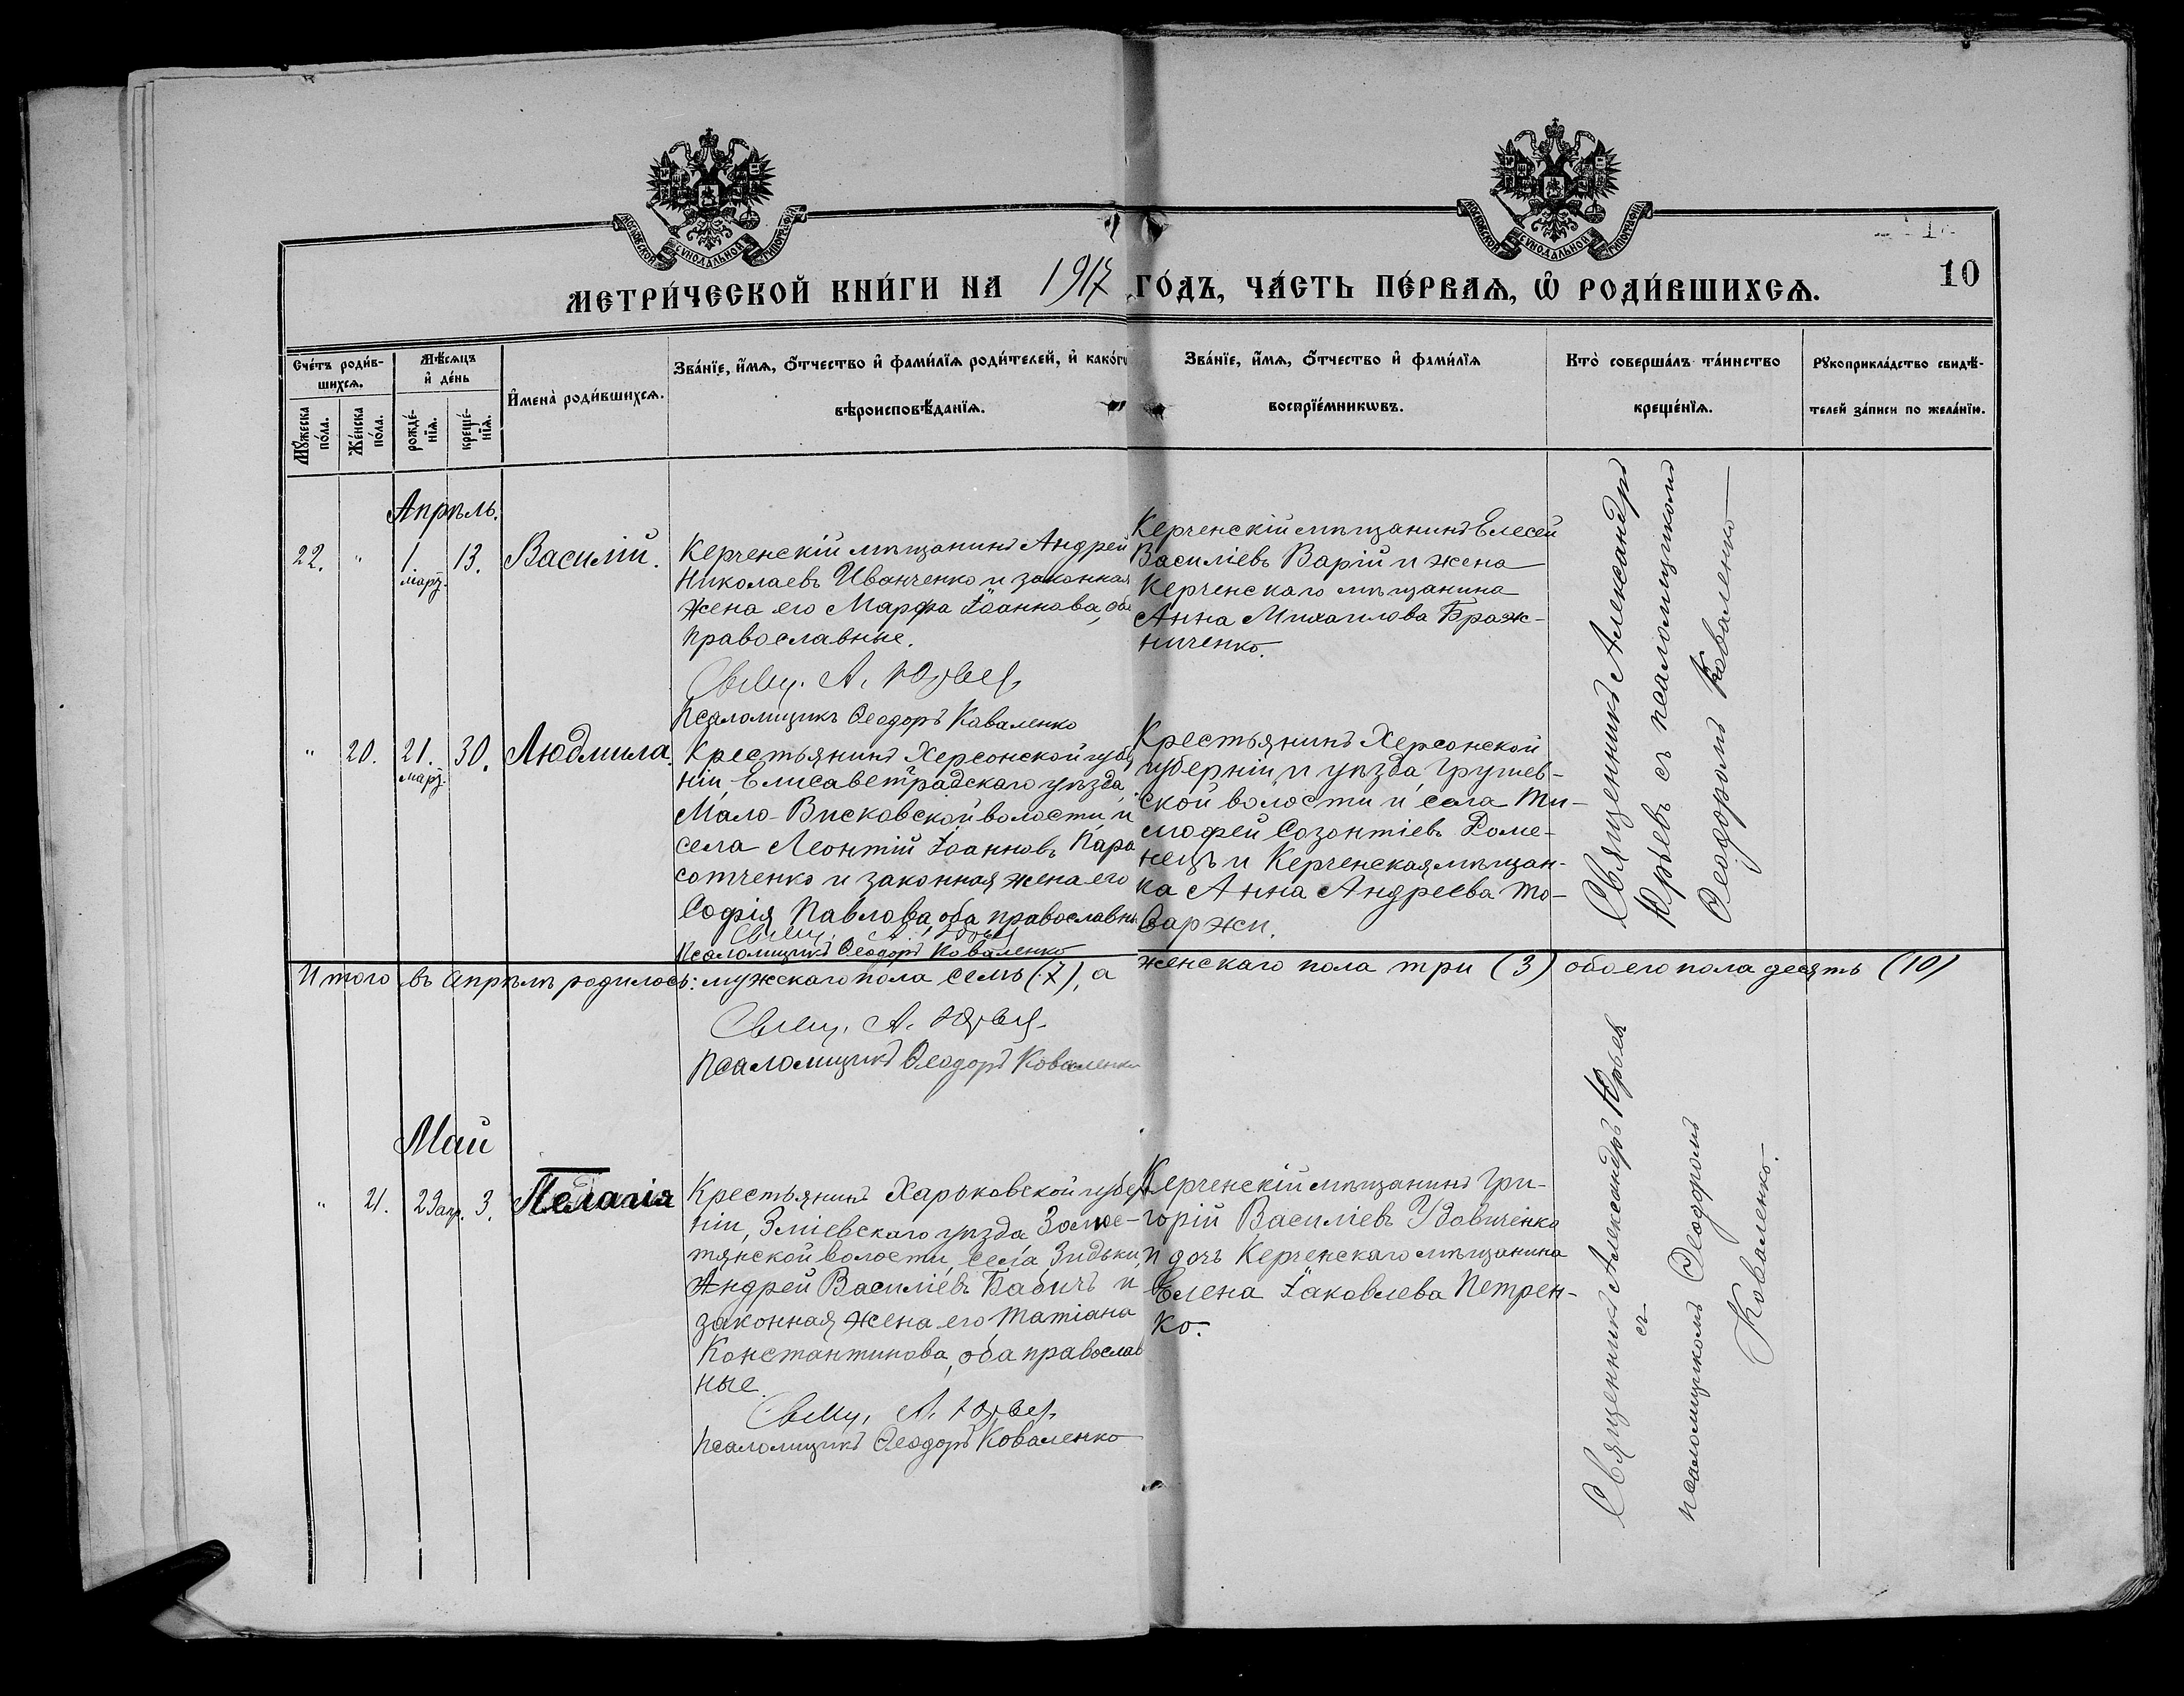 МОСКОВСКОЙ СѴНОДАЛЬНОЙ ТИПОГРАФІИ
МОСКОВСКОЙ СѴНОДАЛЬНОЙ ТИПОГРАФІИ
МЕТРИ́ЧЕСКОЙ КНИ́ГИ НА 1917 ГО́ДЪ, ЧА́СТЬ ПЕ́РВАѦ, Ѽ РОДИ́ВШИХСѦ.
10
Сче́тъ роди́в-
шихсѧ.
Мꙋ́жеска по́ла.
Же́нска по́ла.
Мѣ́сѧцъ
и҆ де́нь
рожде́-
нїѧ.
креще́-
нїѧ.
И҆мена̀ роди́вшихсѧ.
Зва́нїе, и҆́мѧ, ѻ҆́тчество и҆ фами́лїѧ роди́телей, и҆ како́гѡ
вѣроисповѣ́данїѧ.
Зва́нїе, и҆́мѧ, ѻ҆́тчество и҆ фами́лїѧ
воспрїе́мникѡвъ.
Кто̀ соверша́лъ та́инство
креще́нїѧ.
Рꙋкоприкла́дство свидѣ́-
телей за́писи по жела́нїю.
Апрѣль.
22. " 1. март. 13. Василій.
Керченскій мѣщанинъ Андрей
Николаевъ Иванченко и законная
жена его Марфа Іоаннова, оба
православные.
Свящ. А. Юрьев
Псаломщикъ Ѳеодоръ Коваленко
Керченскій мѣщанинъ Елесей
Василіевъ Варій и жена
Керченскаго мѣщанина
Анна Михаилова Браж-
ниченко.
" 20. 21. март. 30. Людмила.
Крестьянинъ Херсонской губер
ніи, Елисаветградскаго уѣзда,
Мало-Висковской волости и
села Леонтій Іоанновъ Пара
сотченко и законная жена его
Софія Павлова, оба православны
Свящ. А. Юрьев
Псаломщикъ Ѳеодоръ Коваленко
Крестьянинъ Херсонской
губерніи и уѣзда, Грушев-
ской волости и села Ти-
мофей Созонтіевъ Роме-
нецъ и Керченская мѣщан-
ка Анна Андреева То-
варжи.
Священникъ Александръ
Юрьевъ съ псаломщикомъ
Ѳеодоромъ Коваленко
Итого въ Апрѣлѣ родилось: мужскаго пола семь (7), а женскаго пола три (3) обоего пола десять (10)
Свящ. А. Юрьев
Псаломщикъ Ѳеодоръ Коваленко
Май
" 21. 29 апр. 3. Пелагія
Крестьянинъ Харьковской губер
ніи, Зміевскаго уѣзда
тянской волости, села Зидьки,
Андрей Василіевъ Бабичъ и
законная жена его Татіана
Константинова, оба православ
ные.
Свящ. А. Юрьев
Псаломщикъ Ѳеодоръ Коваленко
Керченскій мѣщанинъ Гри-
горій Василіевъ Удовиченко
и дочь Керченскаго мѣщанина
Елена Іаковлева Петрен-
ко.
Священникъ Александръ Юрьев
съ
псаломщикомъ Ѳеодоромъ
Коваленко.